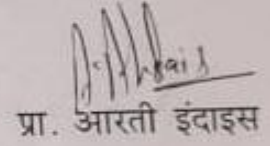 प्रा. आरती इंदाइस